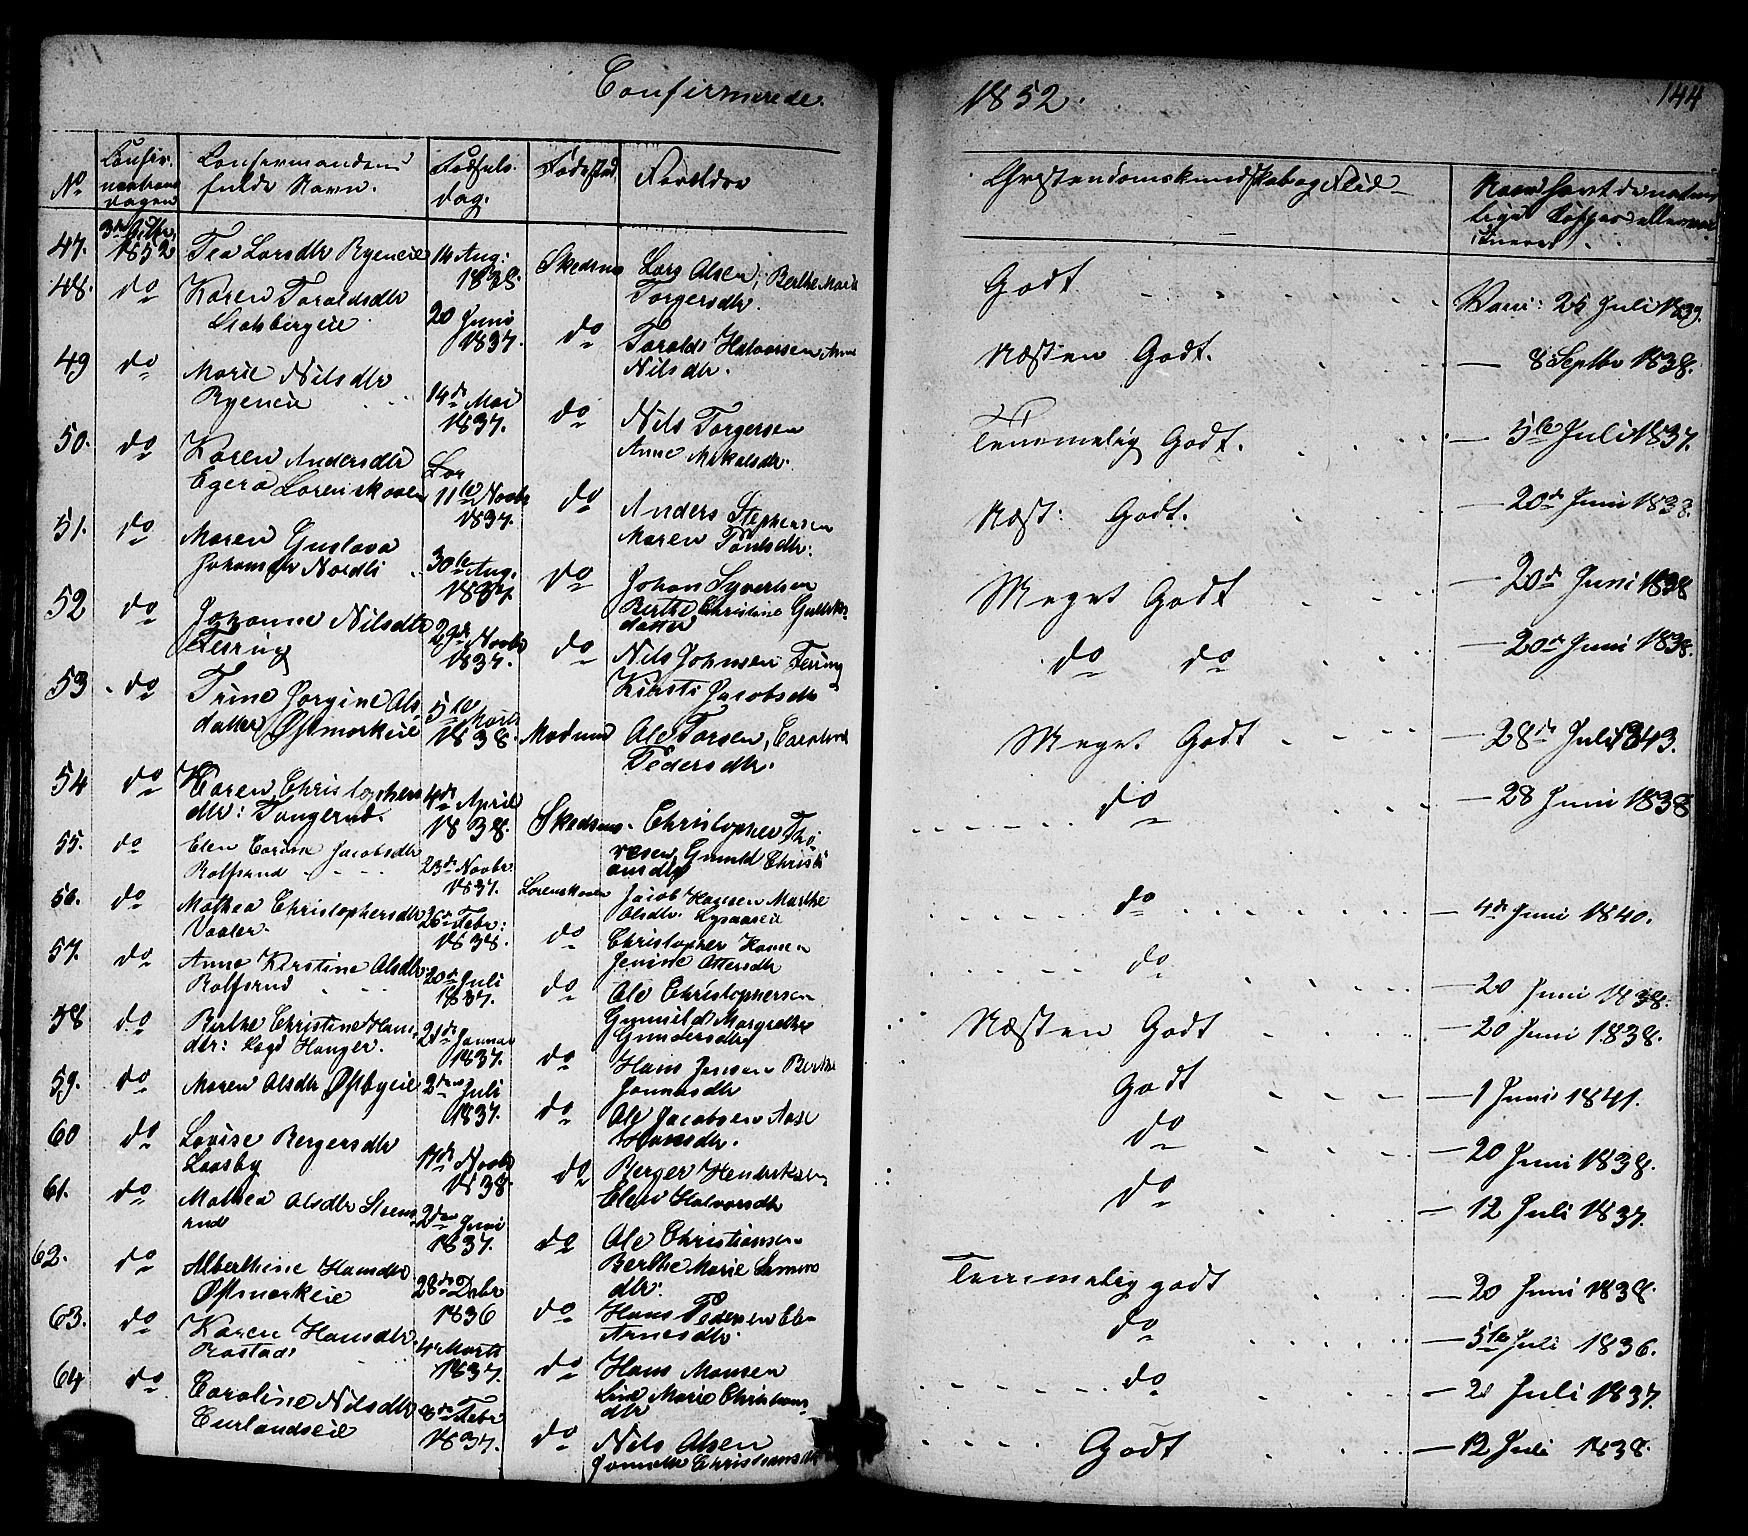 Confirmerede
1852.
144
No
Confir-
mations
dagen
Confirmandens
fulde Navn.
Fødsels-
dag.
Fødested
Forældre
Christendomskundskab og Flid
47.
1852
Tea Larsdtr Ryeneie
14 Aug:
1838.
Skedsmo
Lars Olsen, Berthe Marie
Torgersdtr.
Godt
26 Juli 1839.
48.
do
Karen Taraldsdtr
20 Juni
1837.
do
Tarald Halvorsen Anne
Nilsdtr.
Næsten Godt.
— 8 Septbr 1838.
49
do
Marie Nilsdtr
Ryeneie
14de Mai
1837.
do
Nils Torgersen
Anne
Temmelig Godt.
— 5te Juli 1837.
50.
do
Karen Andersdtr
Lorenskoven
11te Novbr
1837.
do
Anders Stephensen
Maren
Næst: Godt.
— 20de Juni 1838.
51.
do
Maren Gustava
Nordli
30te Aug.
1837.
do
Johan Syvertsen
Berthe Christine
datter
Meget Godt
— 20de Juni 1838
52
do
Johanne Nilsdtr
Tesring
29de Novbr
1837.
do
Nils Johnsen
Kirsti Jacobsdtr
do do
— 20de Juni 1838.
53
do
Trine Jørgine Ols
datter Østmorkeie
5te
1838.
Modum
Ole Larsen,
Pedersdtr.
Meget Godt
— 28de Juli 1843.
54
do
Karen Christophers
dtr: Tangerud.
4de April
1838.
Skedsmo.
Christopher Tho
resen, Gunild Christi
ansdtr
do
— 28 Juni 1838
55.
do
Elen Jacobsdtr
Rolfsrud
23de Novbr
1837.
Lorenskoven
Jacob Hansen Marthe
Olsdtr.
do
— 4de Juni 1840.
56.
do
Mathea Christophersdtr
Vaaler.
26de Febr:
1838.
do
Christopher Hansen
Jenine Ottersdtr
do
— 20 Juni 1838.
57.
do
Anne Kirstine Olsdtr
Rolfsrud
20de Juli
1837.
do
Ole Christophersen
Gunild Margrethe
Gundersdtr
Næsten Godt
— 20 Juni 1838.
58
do
Berthe Christine Hans
dtr: Hauger.
21de Januar
1837.
do
Hans Jensen Berthe
Godt
— 1 Juni 1841.
59.
do
Maren Olsdtr Østbyeie
2den Juli
1837.
do
Ole Jacobsen Aase
Hansdtr.
do
— 20 Juni 1838.
60
do
Lovise Bergersdtr
Losby
17de Novbr
1838.
do
Berger Henriksen
Elen Halvorsdtr
do
— 12 Juli 1837.
61.
do
Mathea Olsdtr Steens
rud
2den Juni
1837.
do
Ole Christiansen
Berthe Marie
dtr:
Temmelig godt
— 20 Juni 1838.
62.
do
Alberthine Hansdtr
Østmorkeie
28de Debr
1836
do
Hans Pedersen
Arnesdtr.
do
— 5te Juli 1836.
63.
do
Karen Hansdtr
Rastad
4 Marts
1837.
do
Hans Monsen
Line Marie Christians
dtr
do
— 2 Juli 1837.
64
do
Caroline Nilsdtr
Curlandseie
8de Febr
1837.
do
Nils Olsen
Christiansdtr
Godt
— 12 Juli 1838.